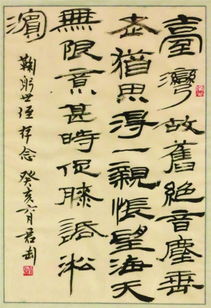 臺灣故舊絕音塵垂
老猶思得一親悵望海天
無限意甚時促膝話淞
濱
鞠躬世存念 癸亥六月君匋